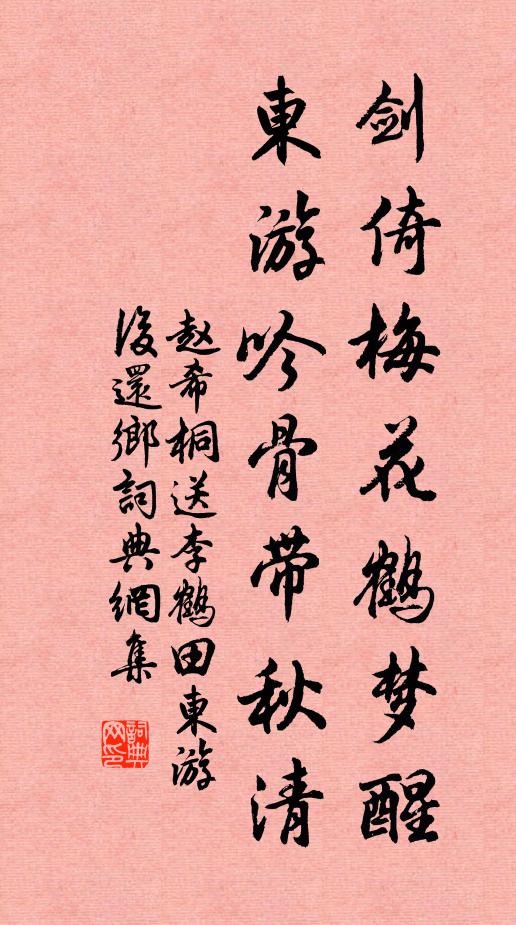 剑倚梅花鹤梦醒
東游吟骨带秋清
赵希桐送李鹤田東游
後還鄉詞典網集
詞典网印